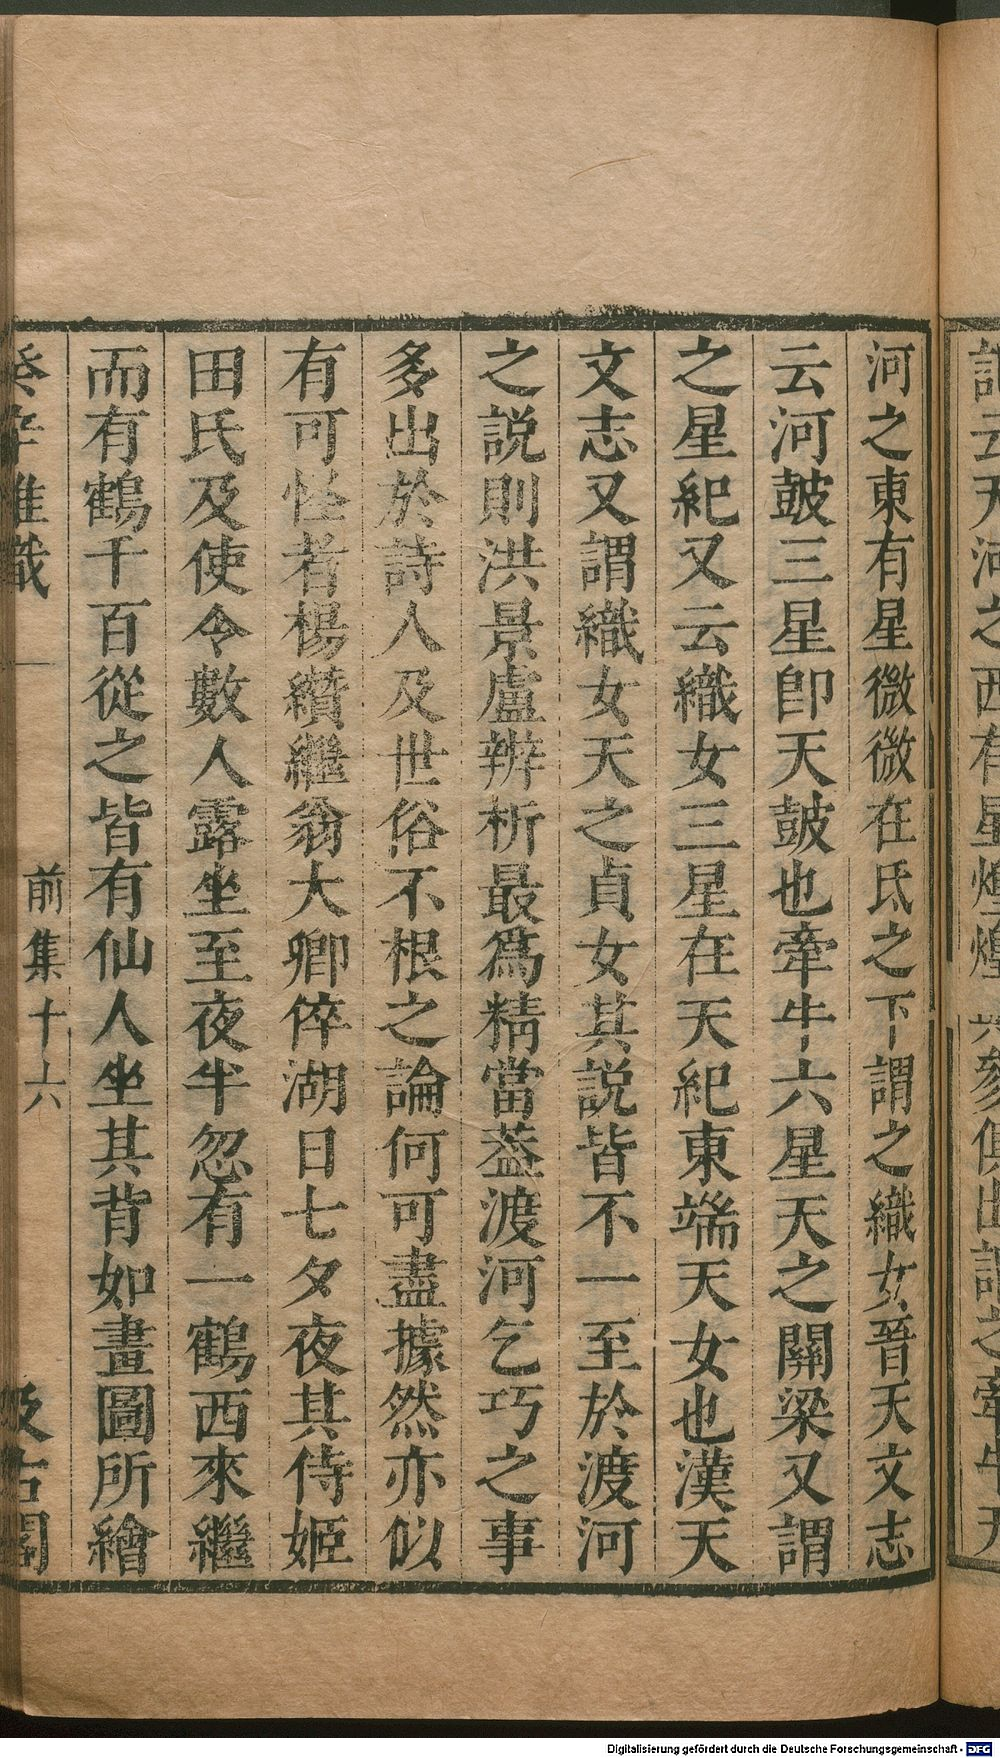 河之東有星微微在氐之下謂之織女晉天文志
云河鼓三星即天鼓也牽牛六星天之關梁又謂
之星紀又云織女三星在天紀東端天女也漢天
文志又謂織女天之貞女其説皆不一至於渡河
之説則洪景盧辨析最為精當蓋渡河乞巧之事
多出於詩人及世俗不根之論何可盡據然亦似
有可怪者楊纘繼翁大卿倅湖日七夕夜其侍姬
田氏及使令數人露坐至夜半忽有一鶴西來繼
而有鶴千百從之皆有仙人坐其背如畫圖所繪
癸辛雜識 前集十六 汲古閣
Digitalisierung gefördert durch die Deutsche Forschungsgemeinschaft - DFG